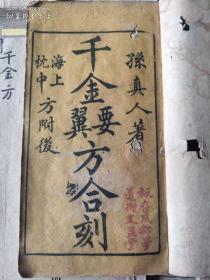 孫真人著
千金翼要方合刻
海上
枕中
方附後
板存成都
千金方